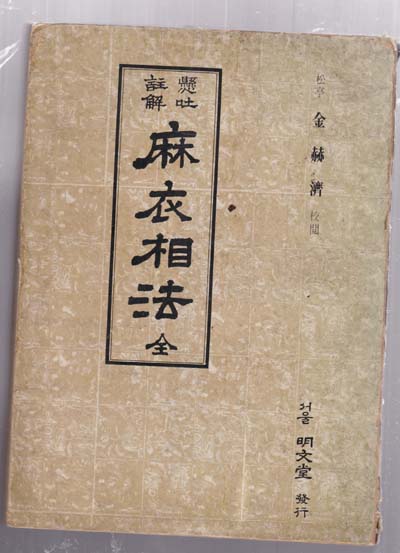 松亭 金赫濟 校閱
懸吐
註解
麻衣相法 全
서울 明文堂 發行